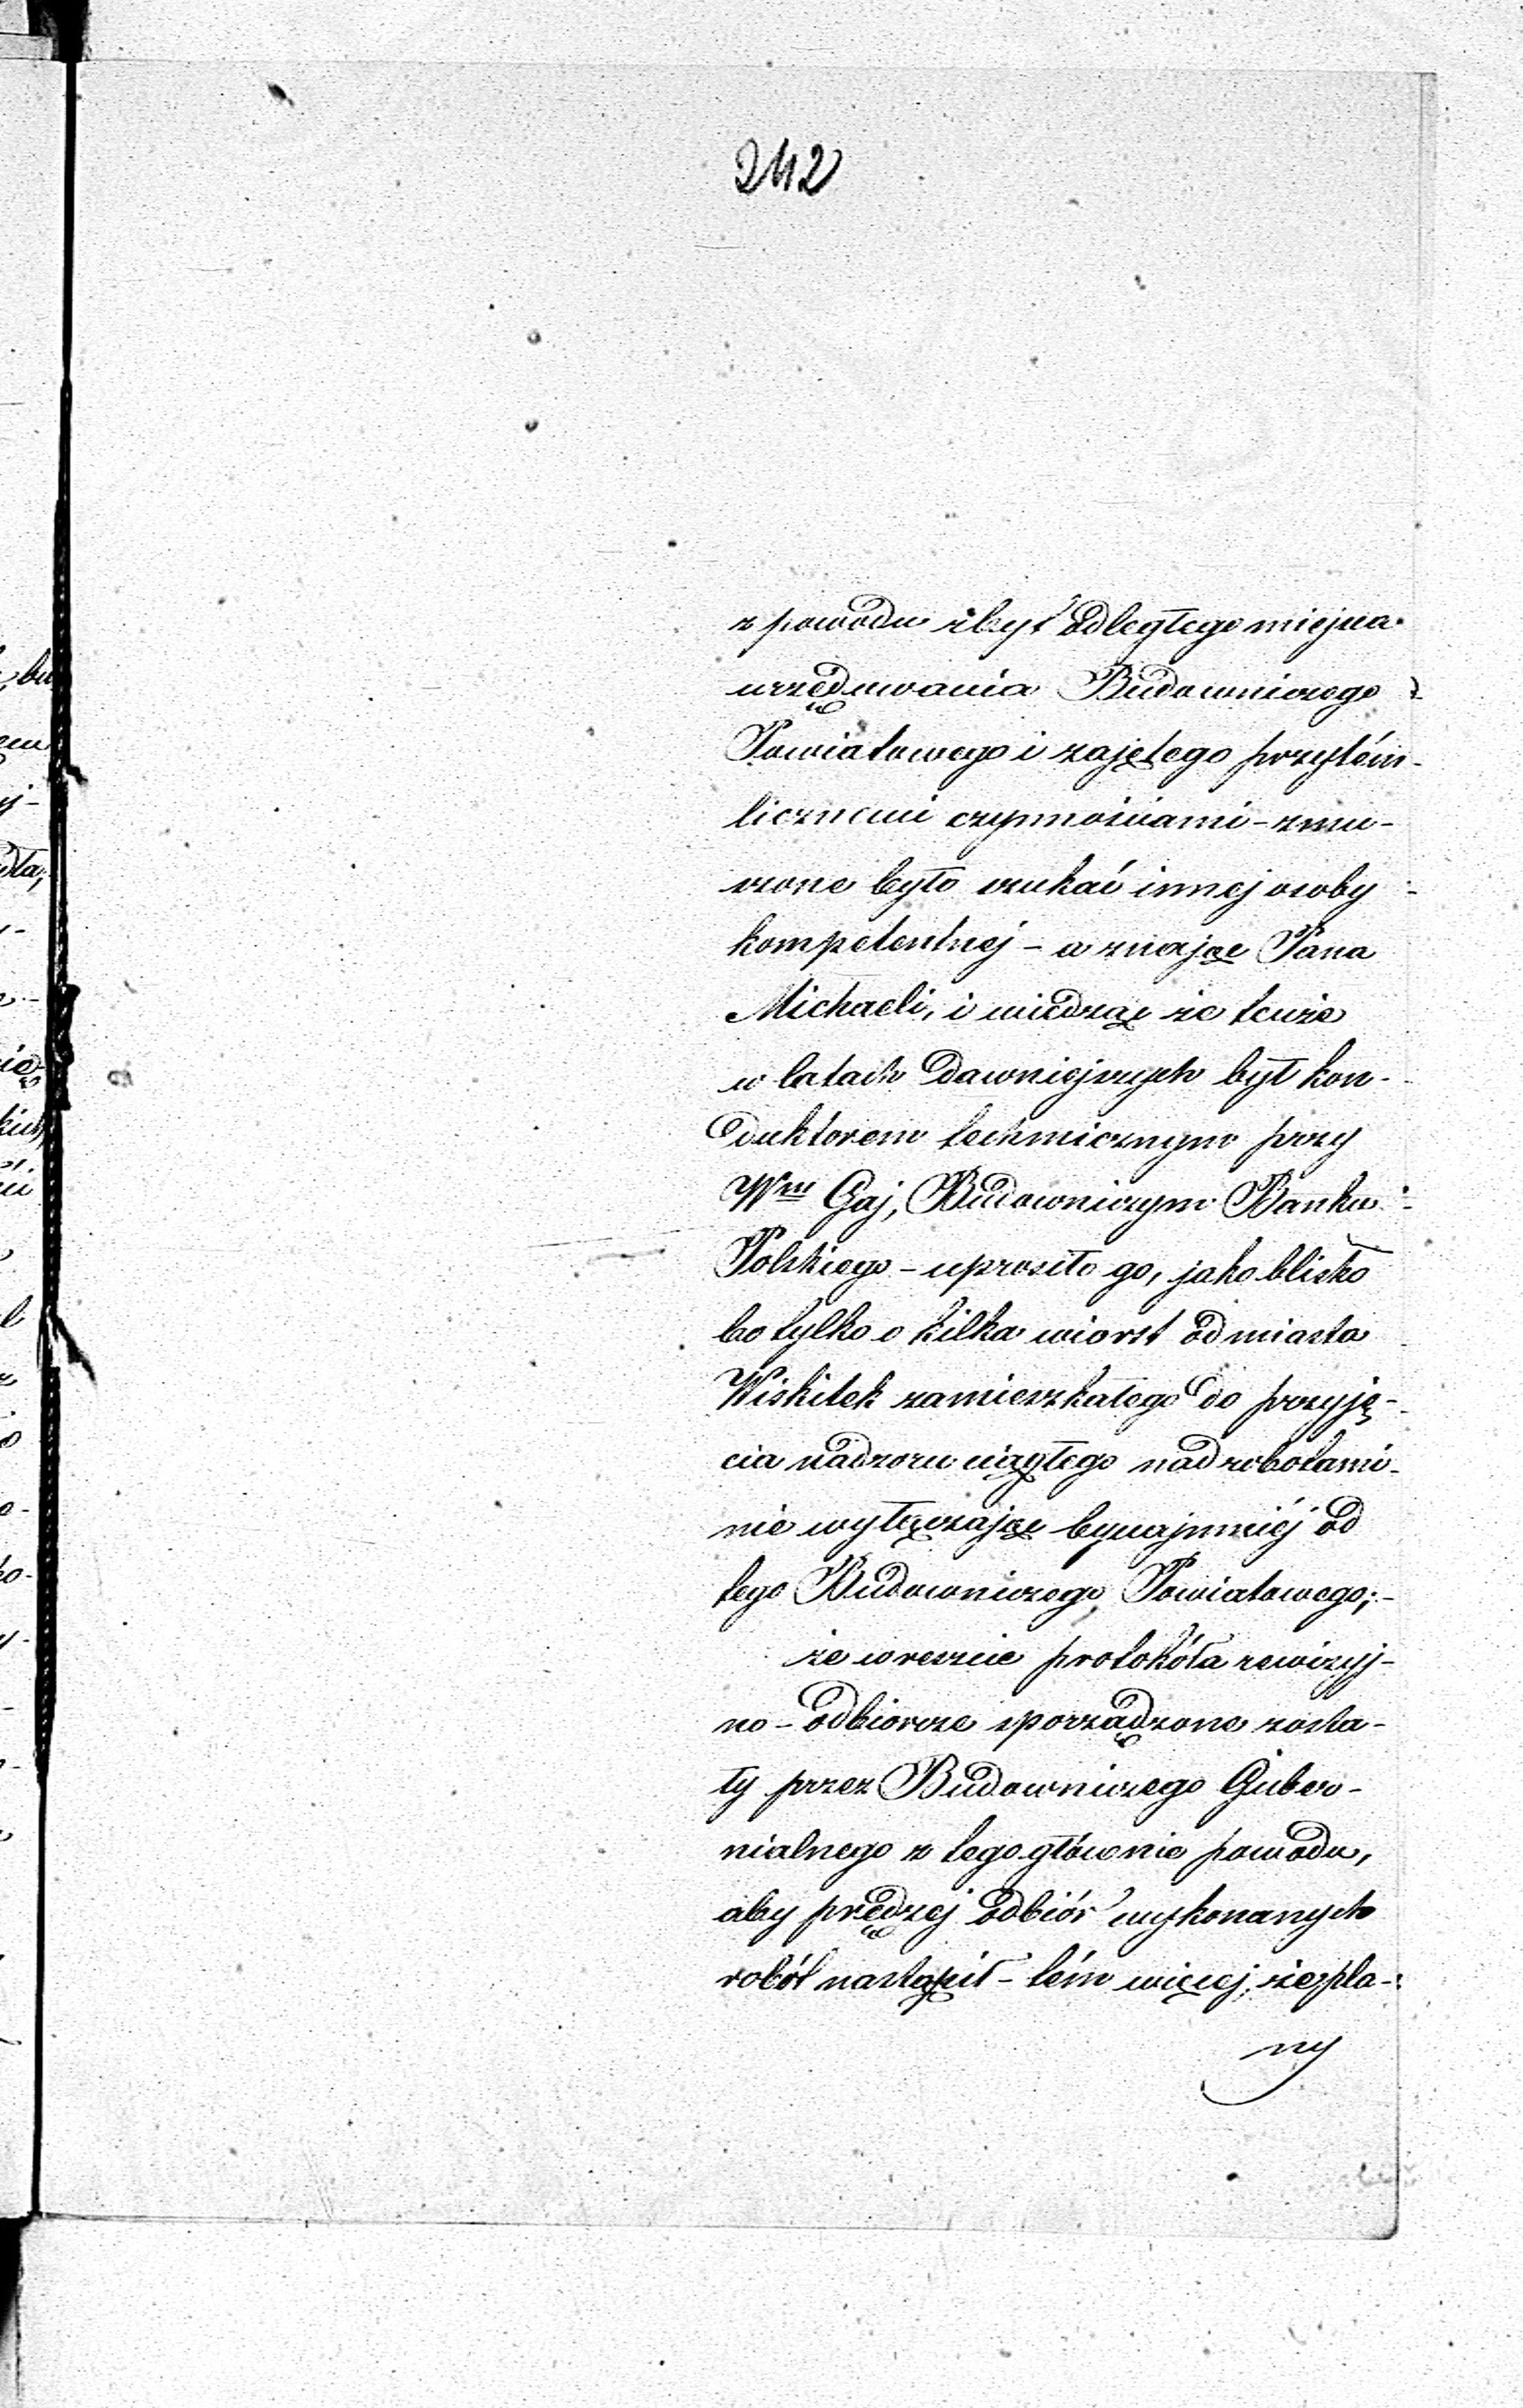 242
z powodu zbyt odległego miejsca
urzędowania Budowniczego
Powiatowego i zajętego przytém
licznemi czynnościami - zmu-
szone było szukać innej osoby
kompetentnej - a znając Pana
Michaeli, i wiedząc że tenże
w latach dawniejszych był kon-
duktorem technicznym przy
Wm Gaj, Budowniczym Banku
Polskiego - uprosiło go, jako blisko
bo tylko o kilka wiorst od miasta
Wiskitek zamieszkałego do przyję-
cia nadzoru ciągłego nad robotami
nie wyłączając bynajmniéj od
tego Budowniczego Powiatowego; -
że wreszcie protokóła rewizyj-
no - odbiorcze sporządzone zosta-
ły przez Budowniczego Guber-
nialnego z tego głównie powodu,
aby prędzej odbiór wykonanych
robót nastąpił - tém więcej, że pla-
ny